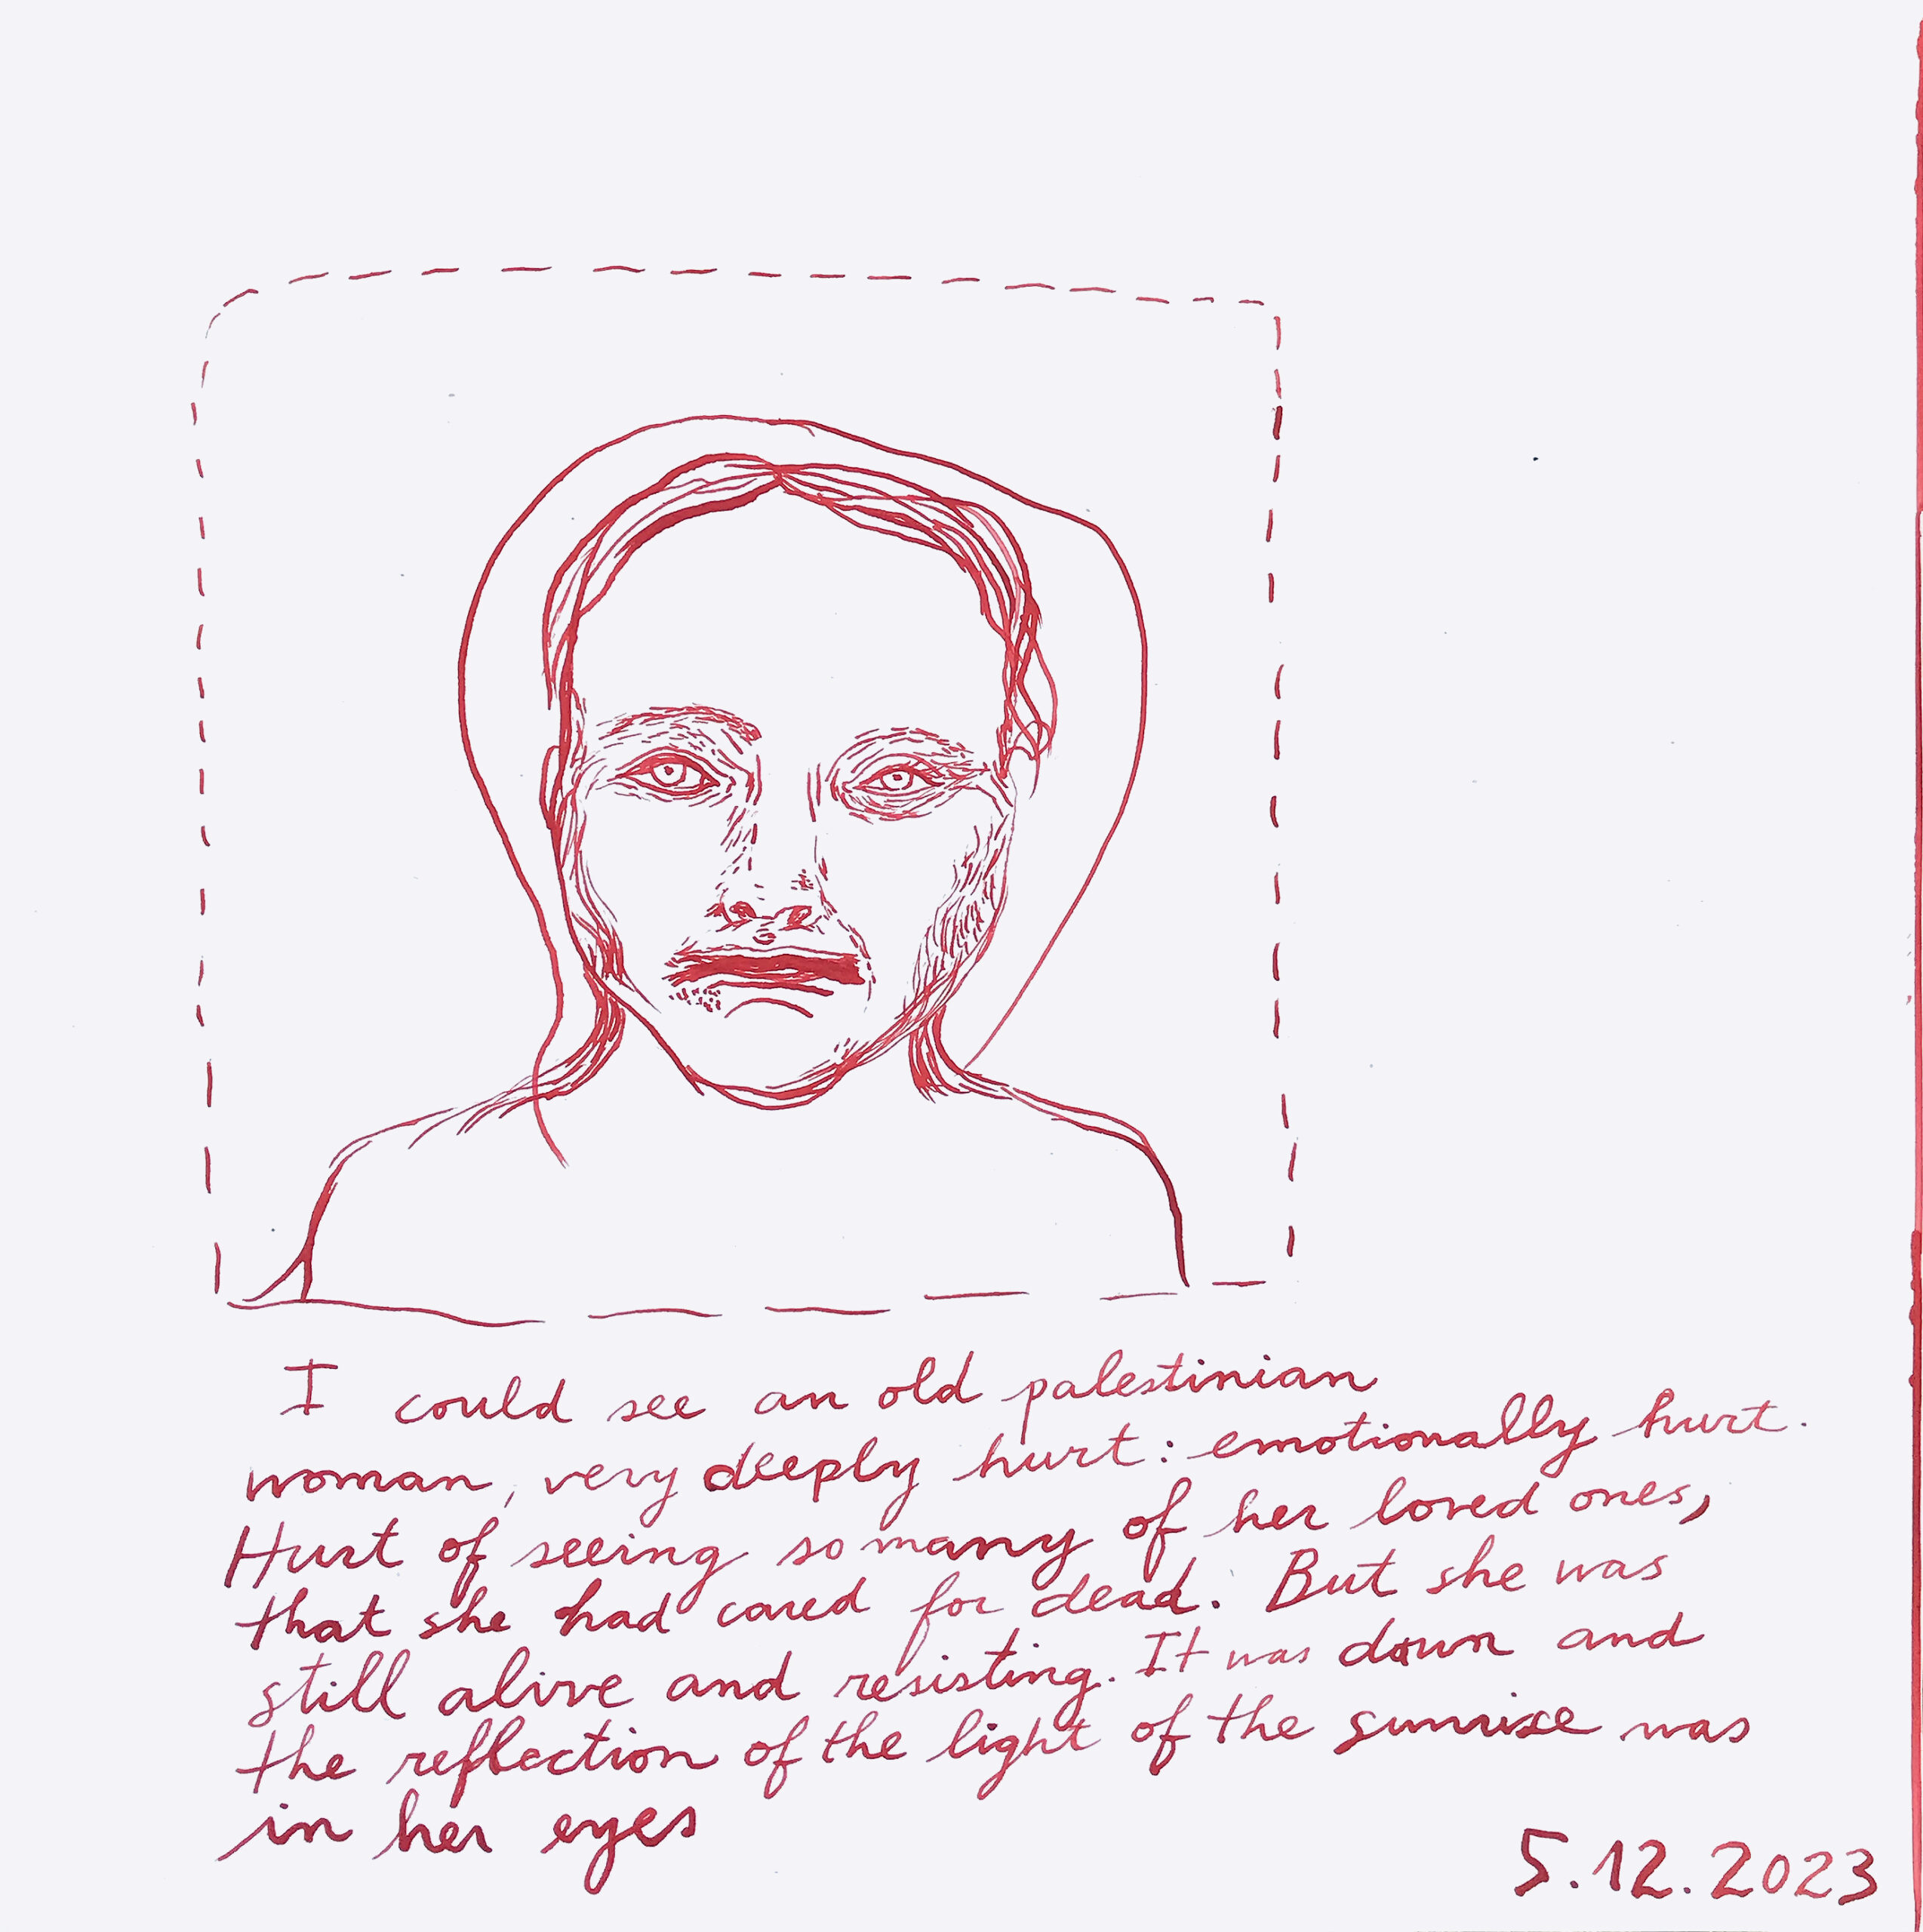 I could see an old palestinian
woman, very deeply hurt: emotionally hurt.
Hurt of seeing so many of her loved ones,
that she had cared for dead. But she was
still alive and resisting. It was down and
the reflection of the light of the sunrise was
in her eyes
5.12.2023